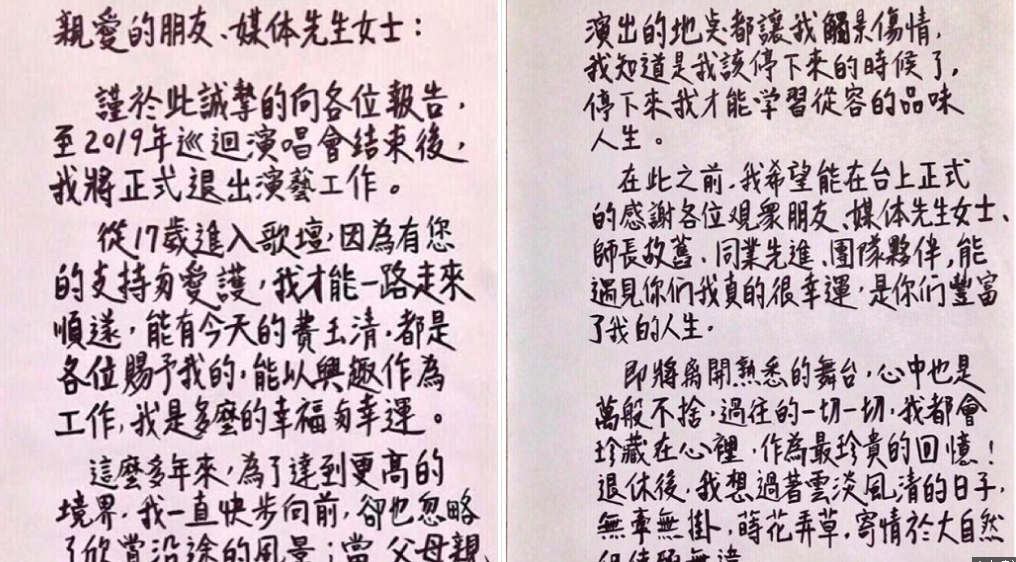 親愛的朋友、媒体先生女士：
謹於此誠摯的向各位報告，
至2019年巡迴演唱會结束後，
我將正式退出演藝工作。
從17歲進入歌壇，因為有您
的支持与愛護，我才能一路走來
順遂，能有今天的費玉清，都是
各位賜予我的，能以興趣作為
工作，我是多麼的幸福与幸運。
這麼多年來，為了達到更高的
境界，我一直快步向前，卻也忽略
了欣賞沿途的風景；當父母親
演出的地点都讓我觸景傷情，
我知道是我該停下來的時候了，
停下來我才能学習從容的品味
人生。
在此之前，我希望能在台上正式
的感謝各位观衆朋友、媒体先生女士、
師長故舊、同業先進、團隊夥伴，能
遇見你们我真的很幸運，是你们豐富
了我的人生。
即將离開熟悉的舞台，心中也是
萬般不捨，過往的一切一切，我都會
珍藏在心裡，作為最珍貴的回憶！
退休後，我想過著雲淡風清的日子，
無牽無掛，蒔花弄草，寄情於大自然